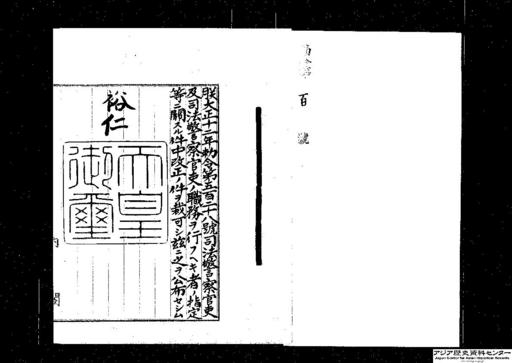 勅令第百號
朕大正十二年勅令第五百二十八號司法警察官吏
及司法警察官吏ノ職務ヲ行フヘキ者ノ指定
等ニ關スル件中改正ノ件ヲ裁可シ茲ニ之ヲ公布セシム
裕仁
天皇御璽
内閣
アジア歴史資料センター
Japan Center for Asian Historical Records